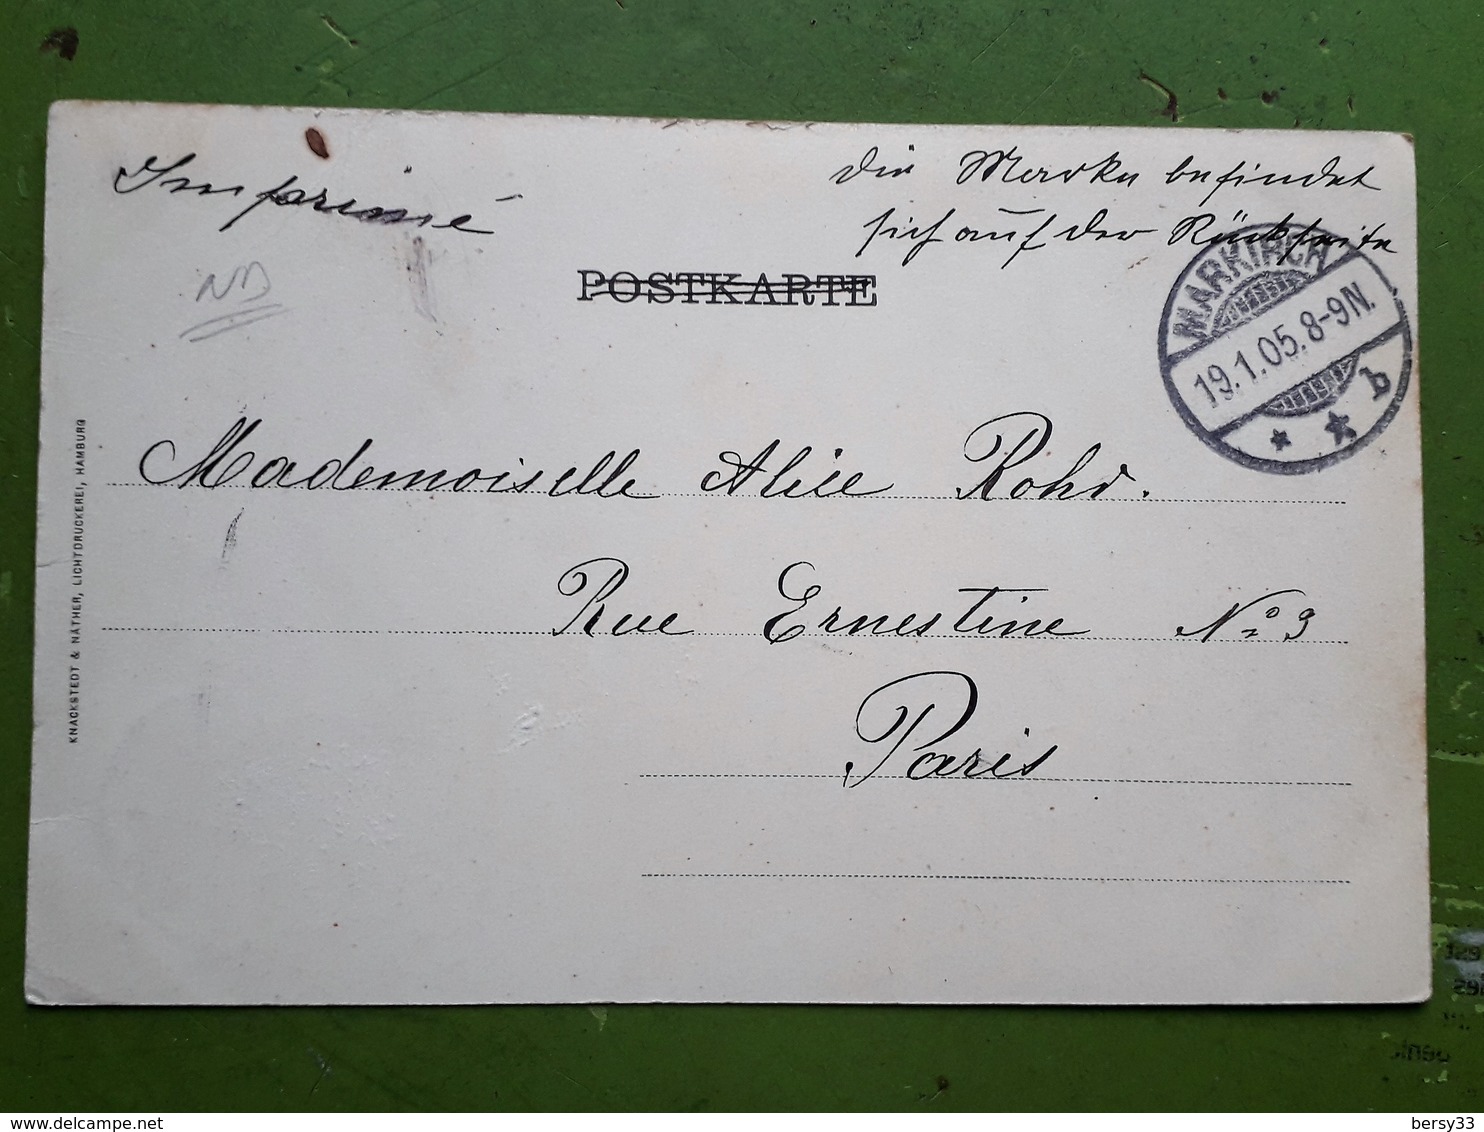 Imprimé
Die Marke befindet
sich auf der Rückseite
ND
POSTKARTE
MARKIRCH
19.1.05.8-9N.
* * b
Mademoiselle Alice Rohr.
Rue Ernestine No 9
Paris
KNACKSTEDT & NÄTHER, LICHTDRUCKEREI, HAMBURG
delcampe.net
bersy33